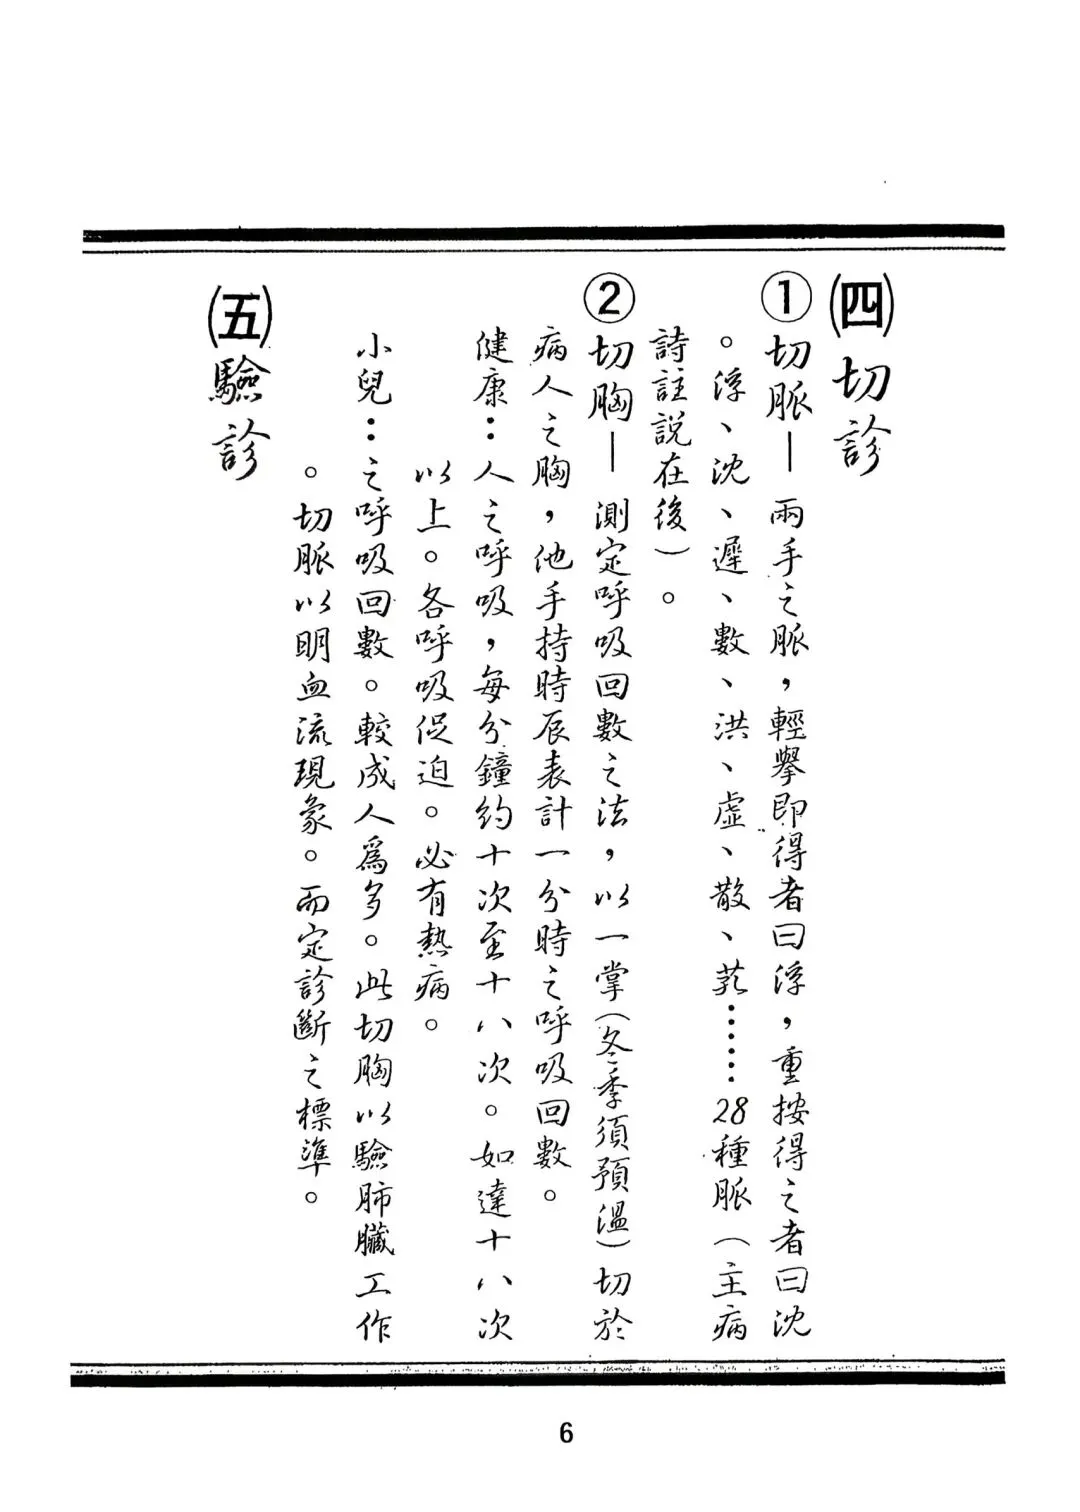 ㈣切診
①切脈—兩手之脈，輕舉即得者曰浮，重按得之者曰沈
。浮、沈、遲、數、洪、虛、散、芤……28種脈（主病
詩註説在後）。
②切胸—測定呼吸回數之法，以一掌（冬季須預溫）切於
病人之胸，他手持時辰表計一分時之呼吸回數。
健康…人之呼吸，每分鐘約十次至十八次。如達十八次
以上。各呼吸促迫。必有熱病。
小兒…之呼吸回數。較成人為多。此切胸以驗肺臟工作
。切脈以明血流現象。而定診斷之標準。
㈤驗診
6